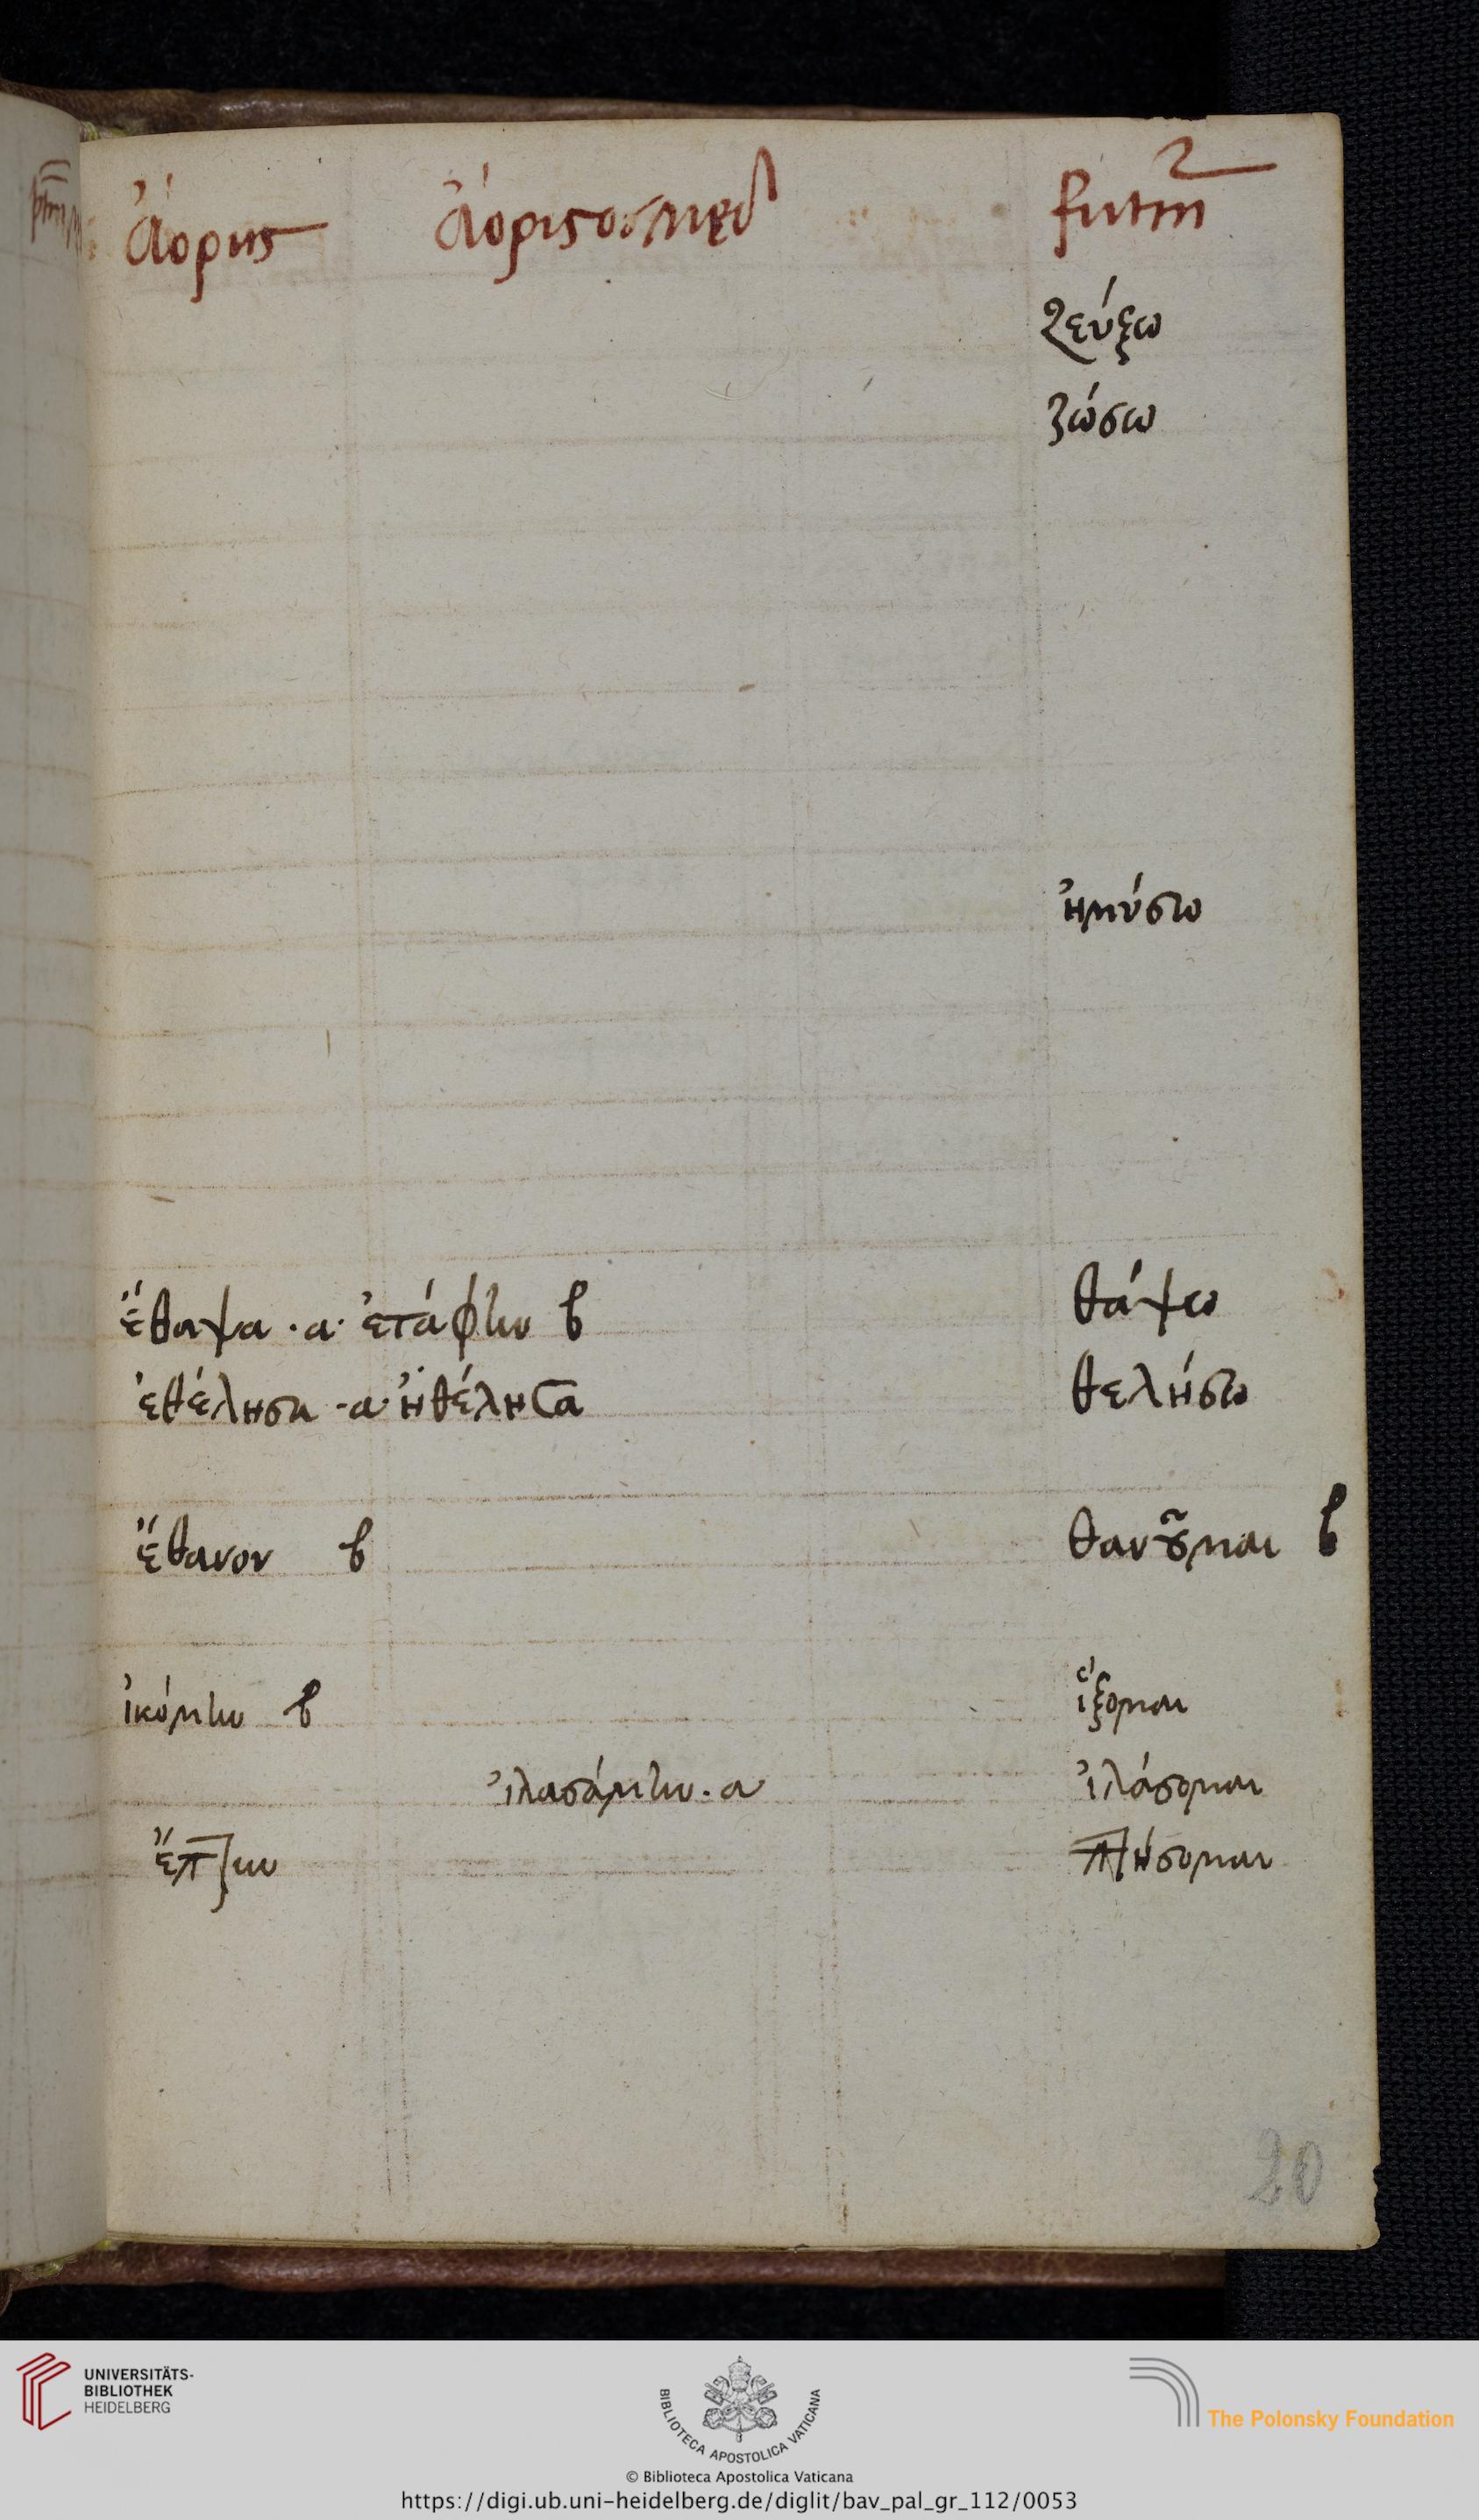 ἀόριϛ ἀόριϛοσ μεδ futm
ζεύξω
ζώσω
ἠμύσω
ἔθαψα · α · ἐτάφην β θάψω
ἐθέλησα · α · ἠθέλησα θελήσω
ἔθανον β θανοῦμαι β
ἰκόμην β ἵξομαι
ἰλασάμην · α ἰλάσομαι
ἔπτην πτήσομαι
20
UNIVERSITÄTS-
BIBLIOTHEK
HEIDELBERG
BIBLIOTECA APOSTOLICA VATICANA
The Polonsky Foundation
© Biblioteca Apostolica Vaticana
https://digi.ub.uni-heidelberg.de/diglit/bav_pal_gr_112/0053